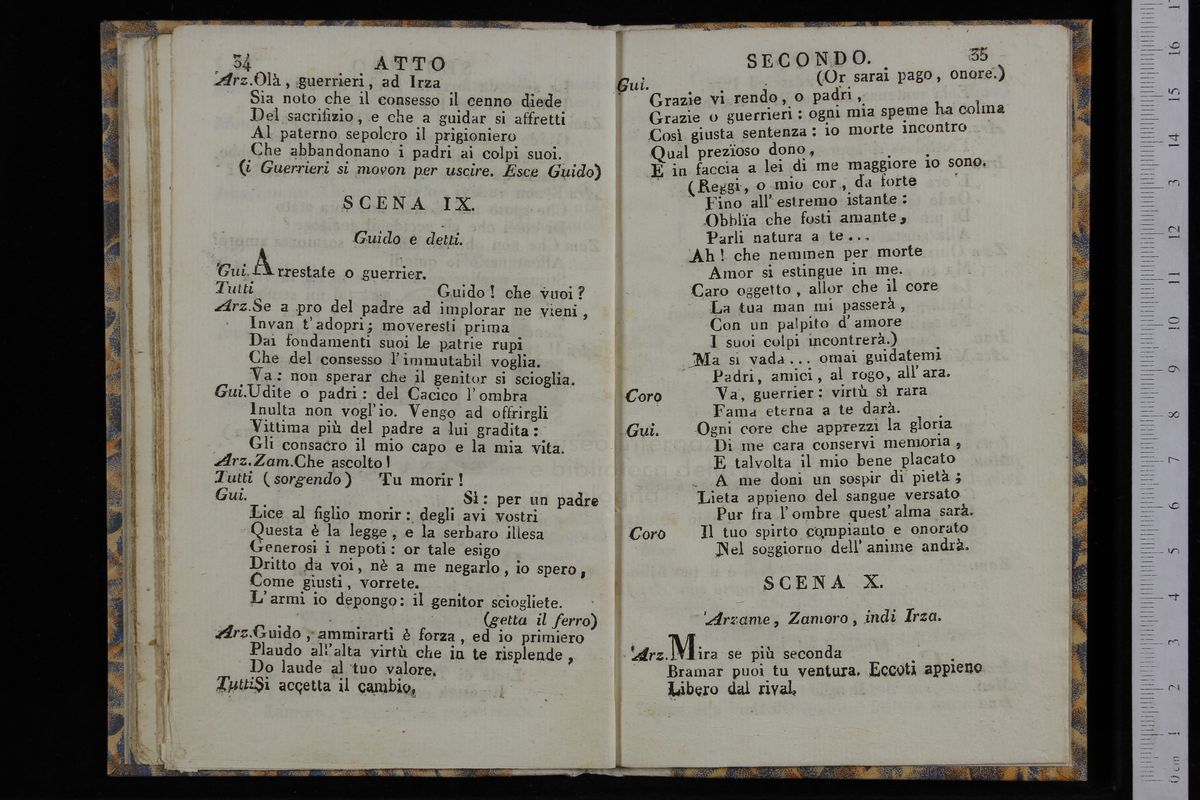 34 ATTO
Arz.Olà, guerrieri, ad Irza
Sia noto che il consesso il cenno diede
Del sacrifizio, e che a guidar si affretti
Al paterno sepolcro il prigioniero
Che abbandonano i padri ai colpi suoi.
(i Guerrieri si movon per uscire. Esce Guido)
SCENA IX.
Guido e detti.
Gui. Arrestate o guerrier.
Tutti Guido! che vuoi?
Arz.Se a pro del padre ad implorar ne vieni,
Invan t'adopri; moveresti prima
Dai fondamenti suoi le patrie rupi
Che del consesso l'immutabil voglia.
Va: non sperar che il genitor si scioglia.
Gui.Udite o padri: del Cacico l'ombra
Inulta non vogl'io. Vengo ad offrirgli
Vittima più del padre a lui gradita:
Gli consacro il mio capo e la mia vita.
Arz.Zam.Che ascolto!
Tutti (sorgendo) Tu morir!
Gui. Sì: per un padre
Lice al figlio morir: degli avi vostri
Questa è la legge, e la serbaro illesa
Generosi i nepoti: or tale esigo
Dritto da voi, nè a me negarlo, io spero,
Come giusti, vorrete.
L'armi io depongo: il genitor sciogliete.
(getta il ferro)
Arz.Guido, ammirarti è forza, ed io primiero
Plaudo all'alta virtù che in te risplende,
Do laude al tuo valore.
TuttiSi accetta il cambio.
SECONDO. 35
Gui. (Or sarai pago, onore.)
Grazie vi rendo, o padri,
Grazie o guerrieri: ogni mia speme ha colma
Così giusta sentenza: io morte incontro
Qual prezïoso dono,
E in faccia a lei di me maggiore io sono.
(Reggi, o mio cor, da forte
Fino all'estremo istante:
Obblìa che fosti amante,
Parli natura a te...
Ah! che nemmen per morte
Amor si estingue in me.
Caro oggetto, allor che il core
La tua man mi passerà,
Con un palpito d'amore
I suoi colpi incontrerà.)
Ma si vada... omai guidatemi
Padri, amici, al rogo, all'ara.
Coro Va, guerrier: virtù sì rara
Fama eterna a te darà.
Gui. Ogni core che apprezzi la gloria
Di me cara conservi memoria,
E talvolta il mio bene placato
A me doni un sospir di pietà;
Lieta appieno del sangue versato
Pur fra l'ombre quest'alma sarà.
Coro Il tuo spirto compianto e onorato
Nel soggiorno dell'anime andrà.
SCENA X.
Arzame, Zamoro, indi Irza.
Arz.Mira se più seconda
Bramar puoi tu ventura. Eccoti appieno
Libero dal rival.